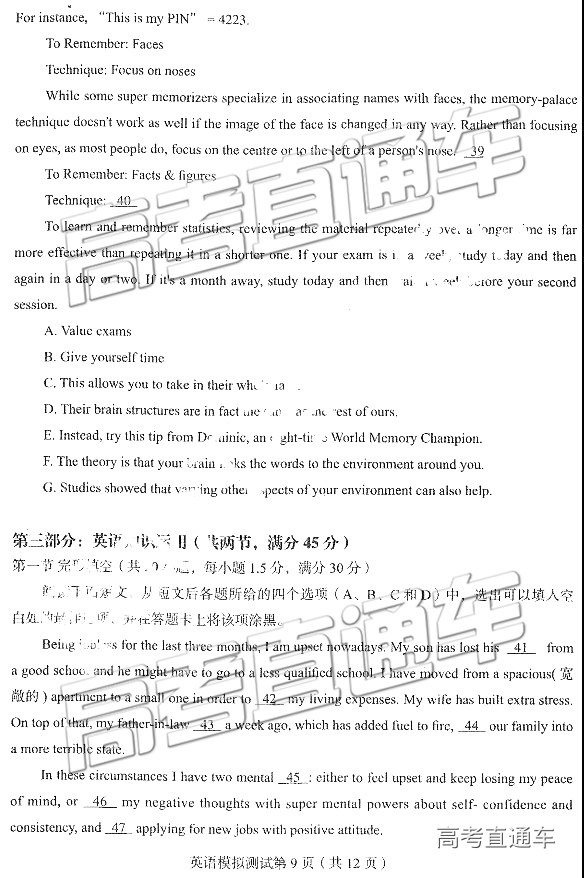 For instance, “This is my PIN” = 4223.
To Remember: Faces
Technique: Focus on noses
While some super memorizers specialize in associating names with faces, the memory-palace
technique doesn't work as well if the image of the face is changed in any way. Rather than focusing
on eyes, as most people do, focus on the centre or to the left of a person's nose. 39
To Remember: Facts & figures
Technique: 40
To learn and remember statistics, reviewing the material repeatedly over a longer time is far
more effective than repeating it in a shorter one. If your exam is in a week, study today and then
again in a day or two. If it's a month away, study today and then before your second
session.
A. Value exams
B. Give yourself time
C. This allows you to take in their whole
D. Their brain structures are in fact the rest of ours.
E. Instead, try this tip from Dominic, an eight-time World Memory Champion.
F. The theory is that your brain links the words to the environment around you.
G. Studies showed that varying other aspects of your environment can also help.
第三部分：英语 用（共两节，满分 45 分）
第一节 完形填空（共 小题，每小题 1.5 分，满分 30 分）
阅读下面短文，从短文后各题所给的四个选项（A、B、C 和 D）中，选出可以填入空
白处的 ，并在答题卡上将该项涂黑。
Being jobless for the last three months, I am upset nowadays. My son has lost his 41 from
a good school and he might have to go to a less qualified school. I have moved from a spacious(宽
敞的) apartment to a small one in order to 42 my living expenses. My wife has built extra stress.
On top of that, my father-in-law 43 a week ago, which has added fuel to fire, 44 our family into
a more terrible state.
In these circumstances I have two mental 45 : either to feel upset and keep losing my peace
of mind, or 46 my negative thoughts with super mental powers about self- confidence and
consistency, and 47 applying for new jobs with positive attitude.
英语模拟测试第 9 页（共 12 页）
高考直通车
高考直通车
高考直通车